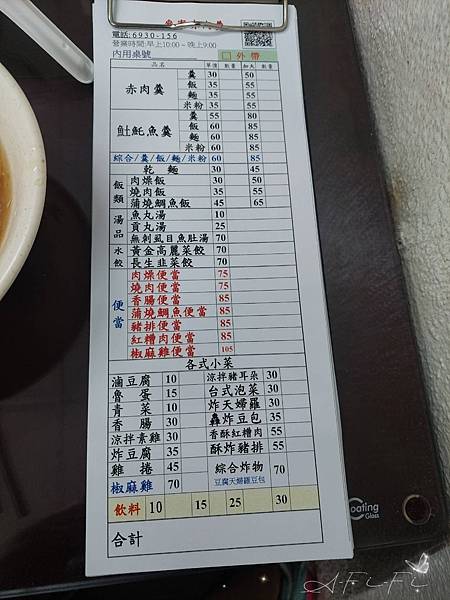 電話:6930-156
營業時間:早上10:00~晚上9:00
內用桌號 外帶
品名 單價 數量 加大 數量
赤肉羹 羹 30 50
飯 35 55
麵 35 55
米粉 35 55
魠魚羹 羹 55 80
飯 60 85
麵 60 85
米粉 60 85
綜合/羹/飯/麵/米粉 60 85
乾麵 30 45
飯類 肉燥飯 30 50
燒肉飯 35 55
蒲燒鯛魚飯 45 65
湯品 魚丸湯 10
貢丸湯 25
無刺虱目魚肚湯 70
水餃 黃金高麗菜餃 70
長生韭菜餃 70
便當 肉燥便當 75
燒肉便當 75
香腸便當 85
蒲燒鯛魚便當 85
豬排便當 85
紅糟肉便當 85
椒麻雞便當 105
各式小菜
滷豆腐 10 涼拌豬耳朵 30
魯蛋 15 台式泡菜 30
青菜 10 炸天婦羅 30
香腸 30 轟炸豆包 35
涼拌素雞 30 香酥紅糟肉 55
炸豆腐 35 酥炸豬排 55
雞捲 45 綜合炸物 70
椒麻雞 70 豆腐天婦羅豆包
飲料 10 15 25 30
合計
Coating
Glass
A-Fi-Fi